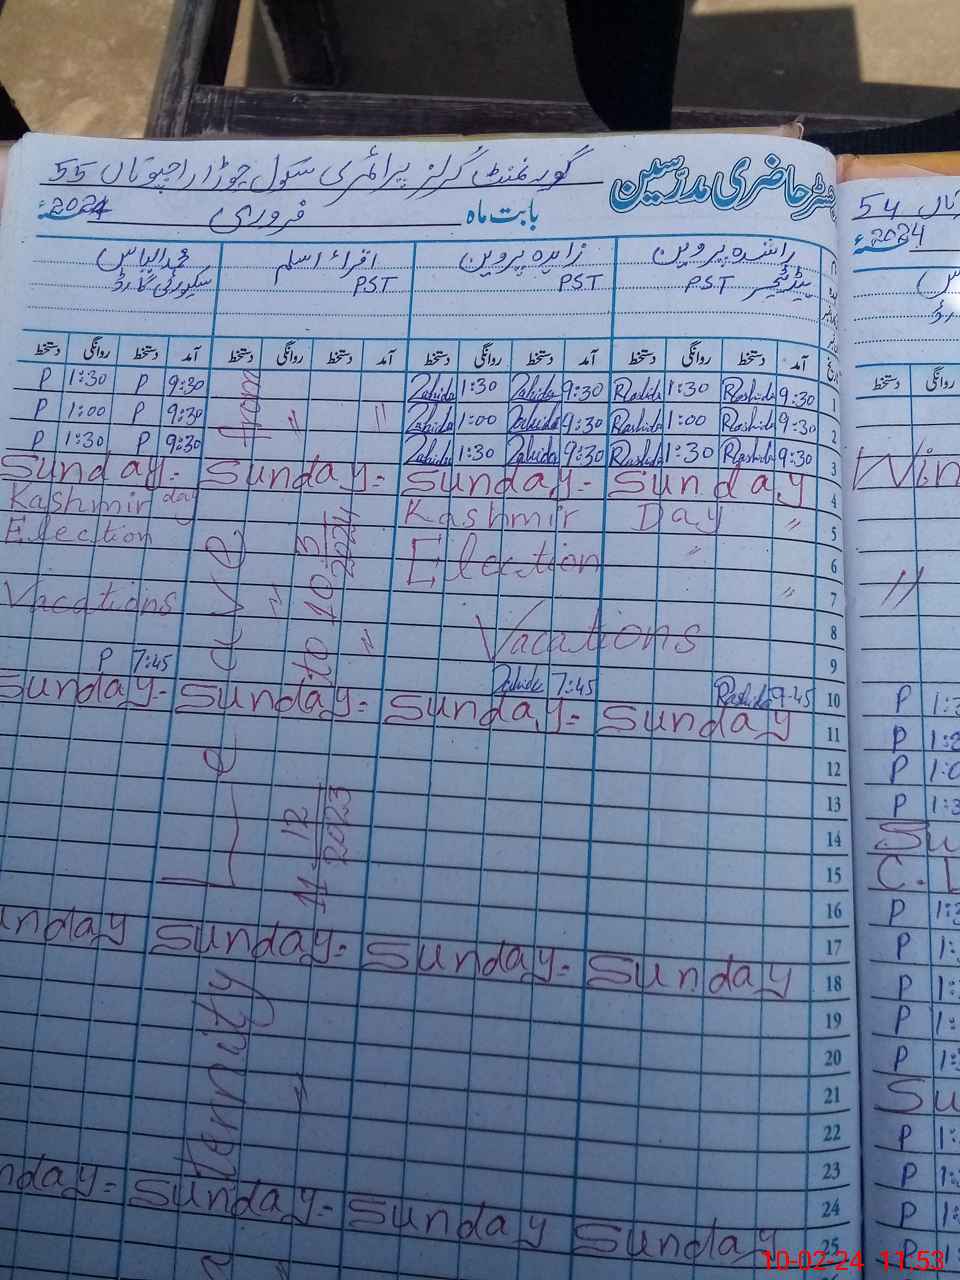 رجسٹر حاضری مدرسین گورنمنٹ گرلز پرائمری سکول چوڑا راجپوتاں 55
بابت ماہ فروری 2024ء
راشدہ پروین زاہدہ پروین اقراء اسلم محمد الیاس
ہیڈ ٹیچر PST PST PST سکیورٹی گارڈ
آمد دستخط روانگی دستخط آمد دستخط روانگی دستخط آمد دستخط روانگی دستخط آمد دستخط روانگی دستخط
1 9:30 Rashida 1:30 Rashida 9:30 Zahida 1:30 Zahida 9:30 P 1:30 P
2 9:30 Rashida 1:00 Rashida 9:30 Zahida 1:00 Zahida " " 9:30 P 1:00 P
3 9:30 Rashida 1:30 Rashida 9:30 Zahida 1:30 Zahida 9:30 P 1:30 P
4 Sunday - Sunday - Sunday - Sunday
5 Kashmir day Kashmir Day "
6 Election Election "
7 "
8 Vacations Vacations
9
10 9:45 Rashida 7:45 Zahida 7:45 P
11 Sunday - Sunday - Sunday - Sunday
12
13
14
15
16
17
18 Sunday Sunday - Sunday - Sunday
19
20
21
22
23
24
25 Sunday - Sunday - Sunday Sunday
ternity Leave from
11 12 2023 to 10 3 2024
54
2024ء
دستخط روانگی
Win
"
P
P
P 1:0
P
Su
C.L
P
P
P
P
P
Su
P
P
P
P
10-02-24 11:53